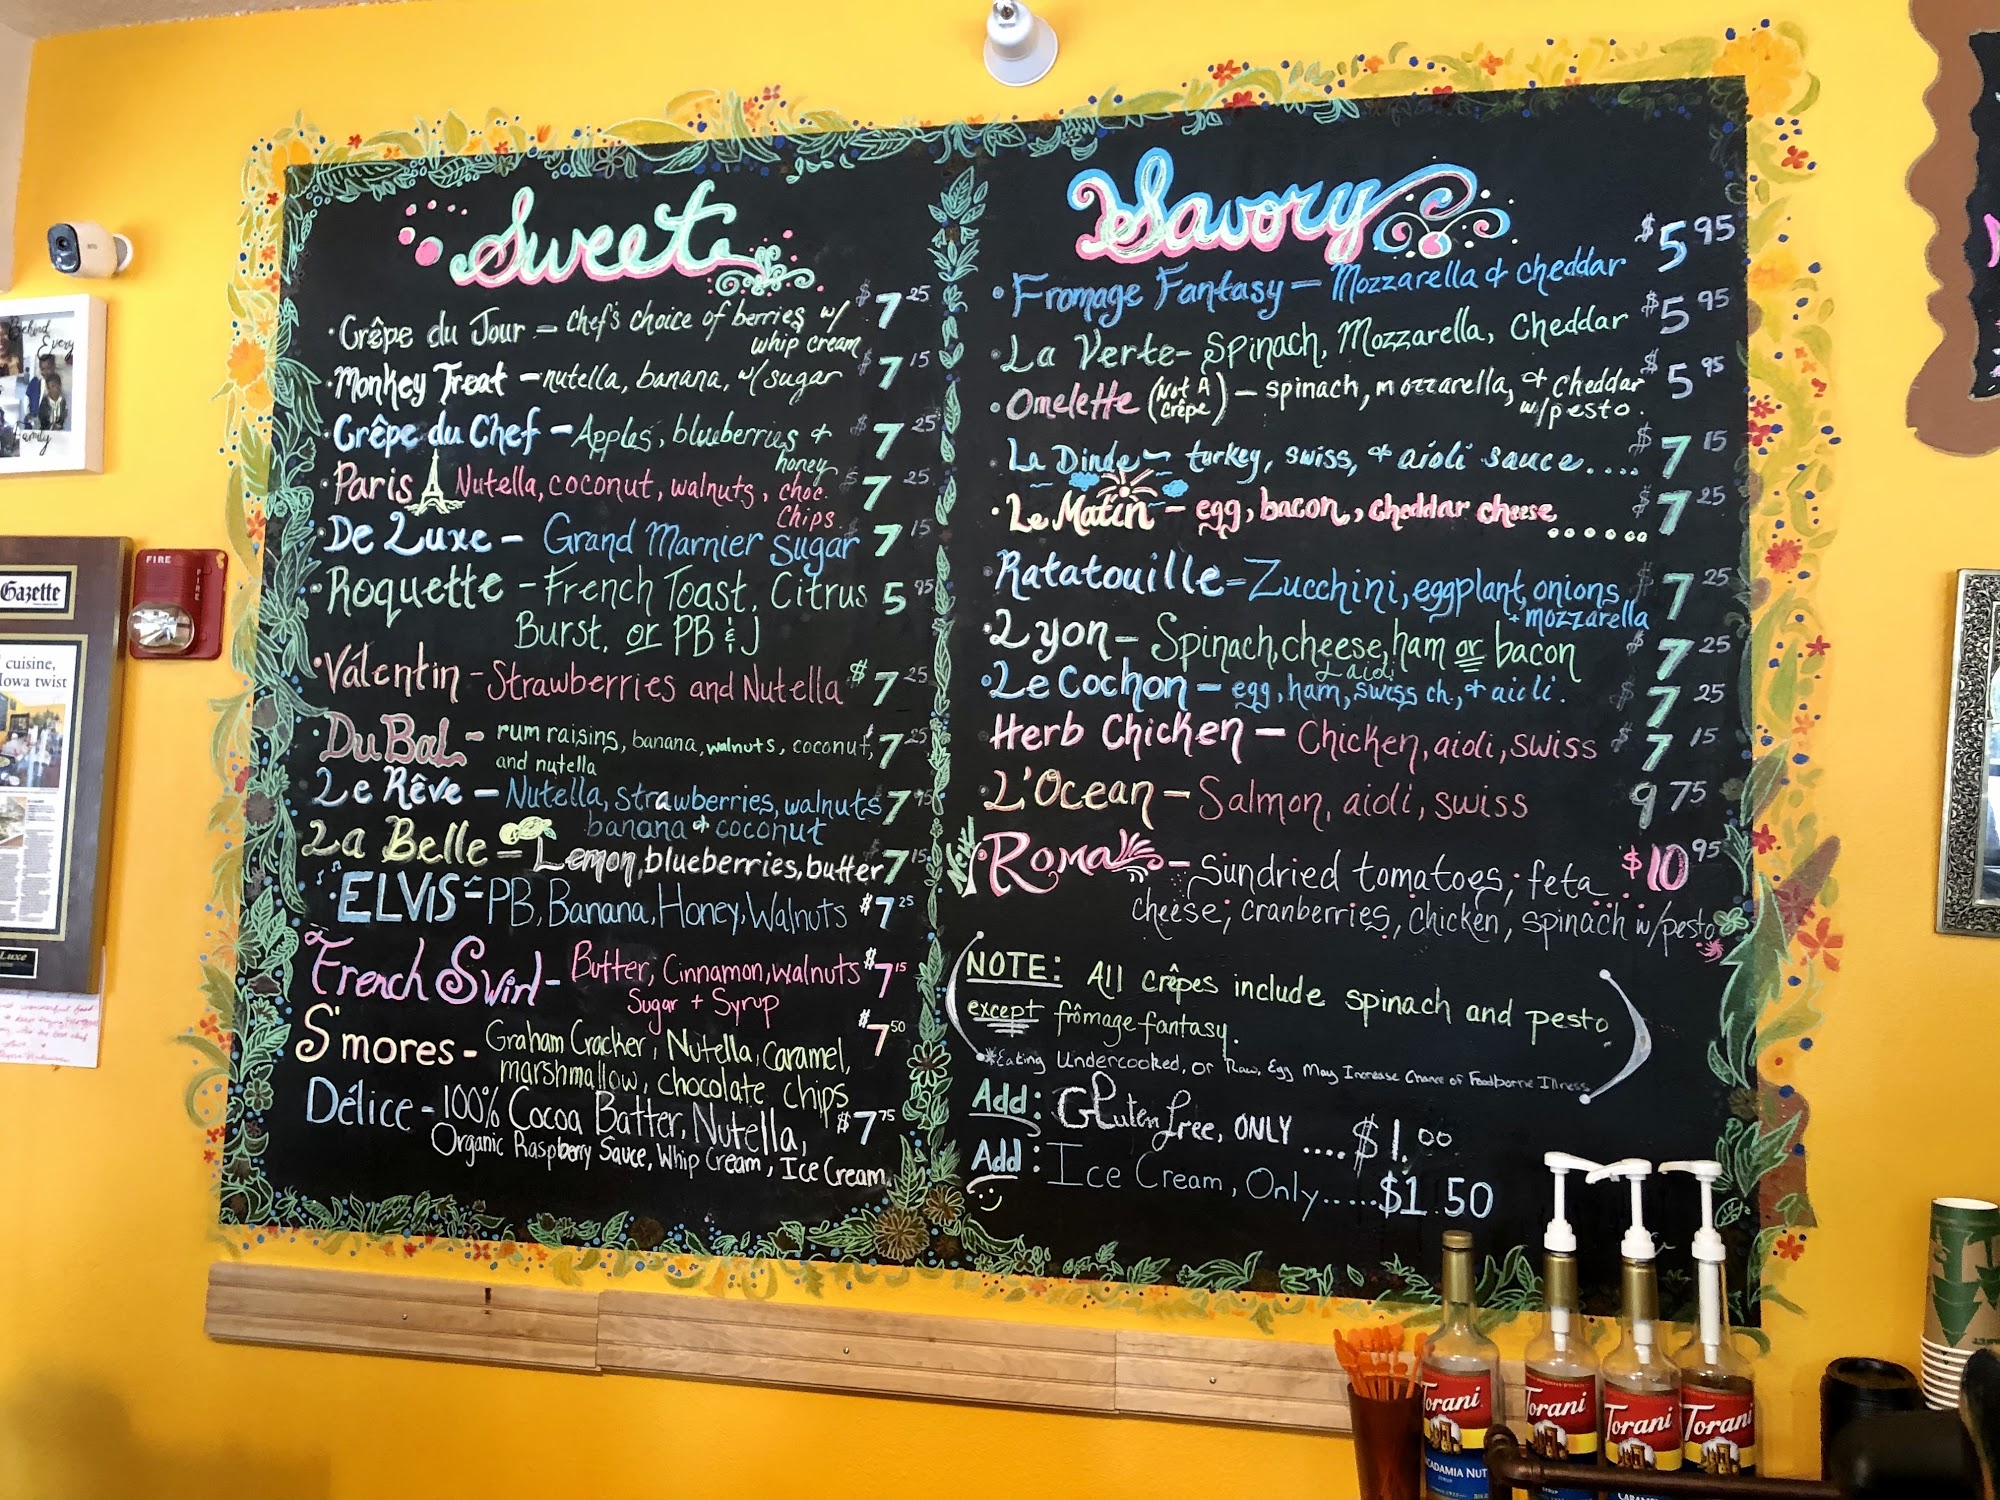 Sweet
· Crêpe du Jour – chef's choice of berries w/ $7 25
whip cream
· Monkey Treat – nutella, banana, w/ sugar $7 15
· Crêpe du Chef – Apples, blueberries & $7 25
honey
· Paris Nutella, coconut, walnuts, choc. $7 25
Chips
· De Luxe – Grand Marnier Sugar 7 15
· Roquette – French Toast, Citrus 5 95
Burst, or PB & J
· Valentin – Strawberries and Nutella $7 25
· Du Bal – rum raisins, banana, walnuts, coconut, 7 25
and nutella
· Le Rêve – Nutella, strawberries, walnuts 7 95
banana & coconut
La Belle – Lemon, blueberries, butter 7 15
ELVIS – PB, Banana, Honey, Walnuts $7 25
French Swirl – Butter, Cinnamon, walnuts $7 15
Sugar + Syrup
S'mores – Graham Cracker, Nutella, Caramel, $7 50
marshmallow, chocolate chips
Délice – 100% Cocoa Batter, Nutella, $7 75
Organic Raspberry Sauce, Whip Cream, Ice Cream
Savory
· Fromage Fantasy – Mozzarella & cheddar $5 95
· La Verte – Spinach, Mozzarella, Cheddar $5 95
· Omelette (Not A Crêpe) – spinach, mozzarella, & cheddar $5 95
w/pesto.
· La Dinde – turkey, swiss, & aioli sauce.... $7 15
· Le Matin – egg, bacon, cheddar cheese ...... $7 25
· Ratatouille = Zucchini, eggplant, onions, $7 25
+ mozzarella
· Lyon – Spinach, cheese, ham or bacon $7 25
& aioli
· Le Cochon – egg, ham, swiss ch., & aioli. $7 25
Herb Chicken – Chicken, aioli, swiss $7 15
L'Ocean – Salmon, aioli, swiss 9 75
New! · Roma – Sundried tomatoes, feta $10 95
cheese, cranberries, chicken, spinach w/pesto
NOTE: All crêpes include spinach and pesto
except frômage fantasy.
*Eating Undercooked, or Raw, Egg May Increase Chance of Foodborne Illness
Add: Gluten free, ONLY ....$1.00
Add: Ice Cream, Only.....$1.50
Behind
Every
Family
FIRE
FIRE
Gazette
cuisine,
Iowa twist
Luxe
Torani
Torani
Torani
Torani
MACADAMIA NUT